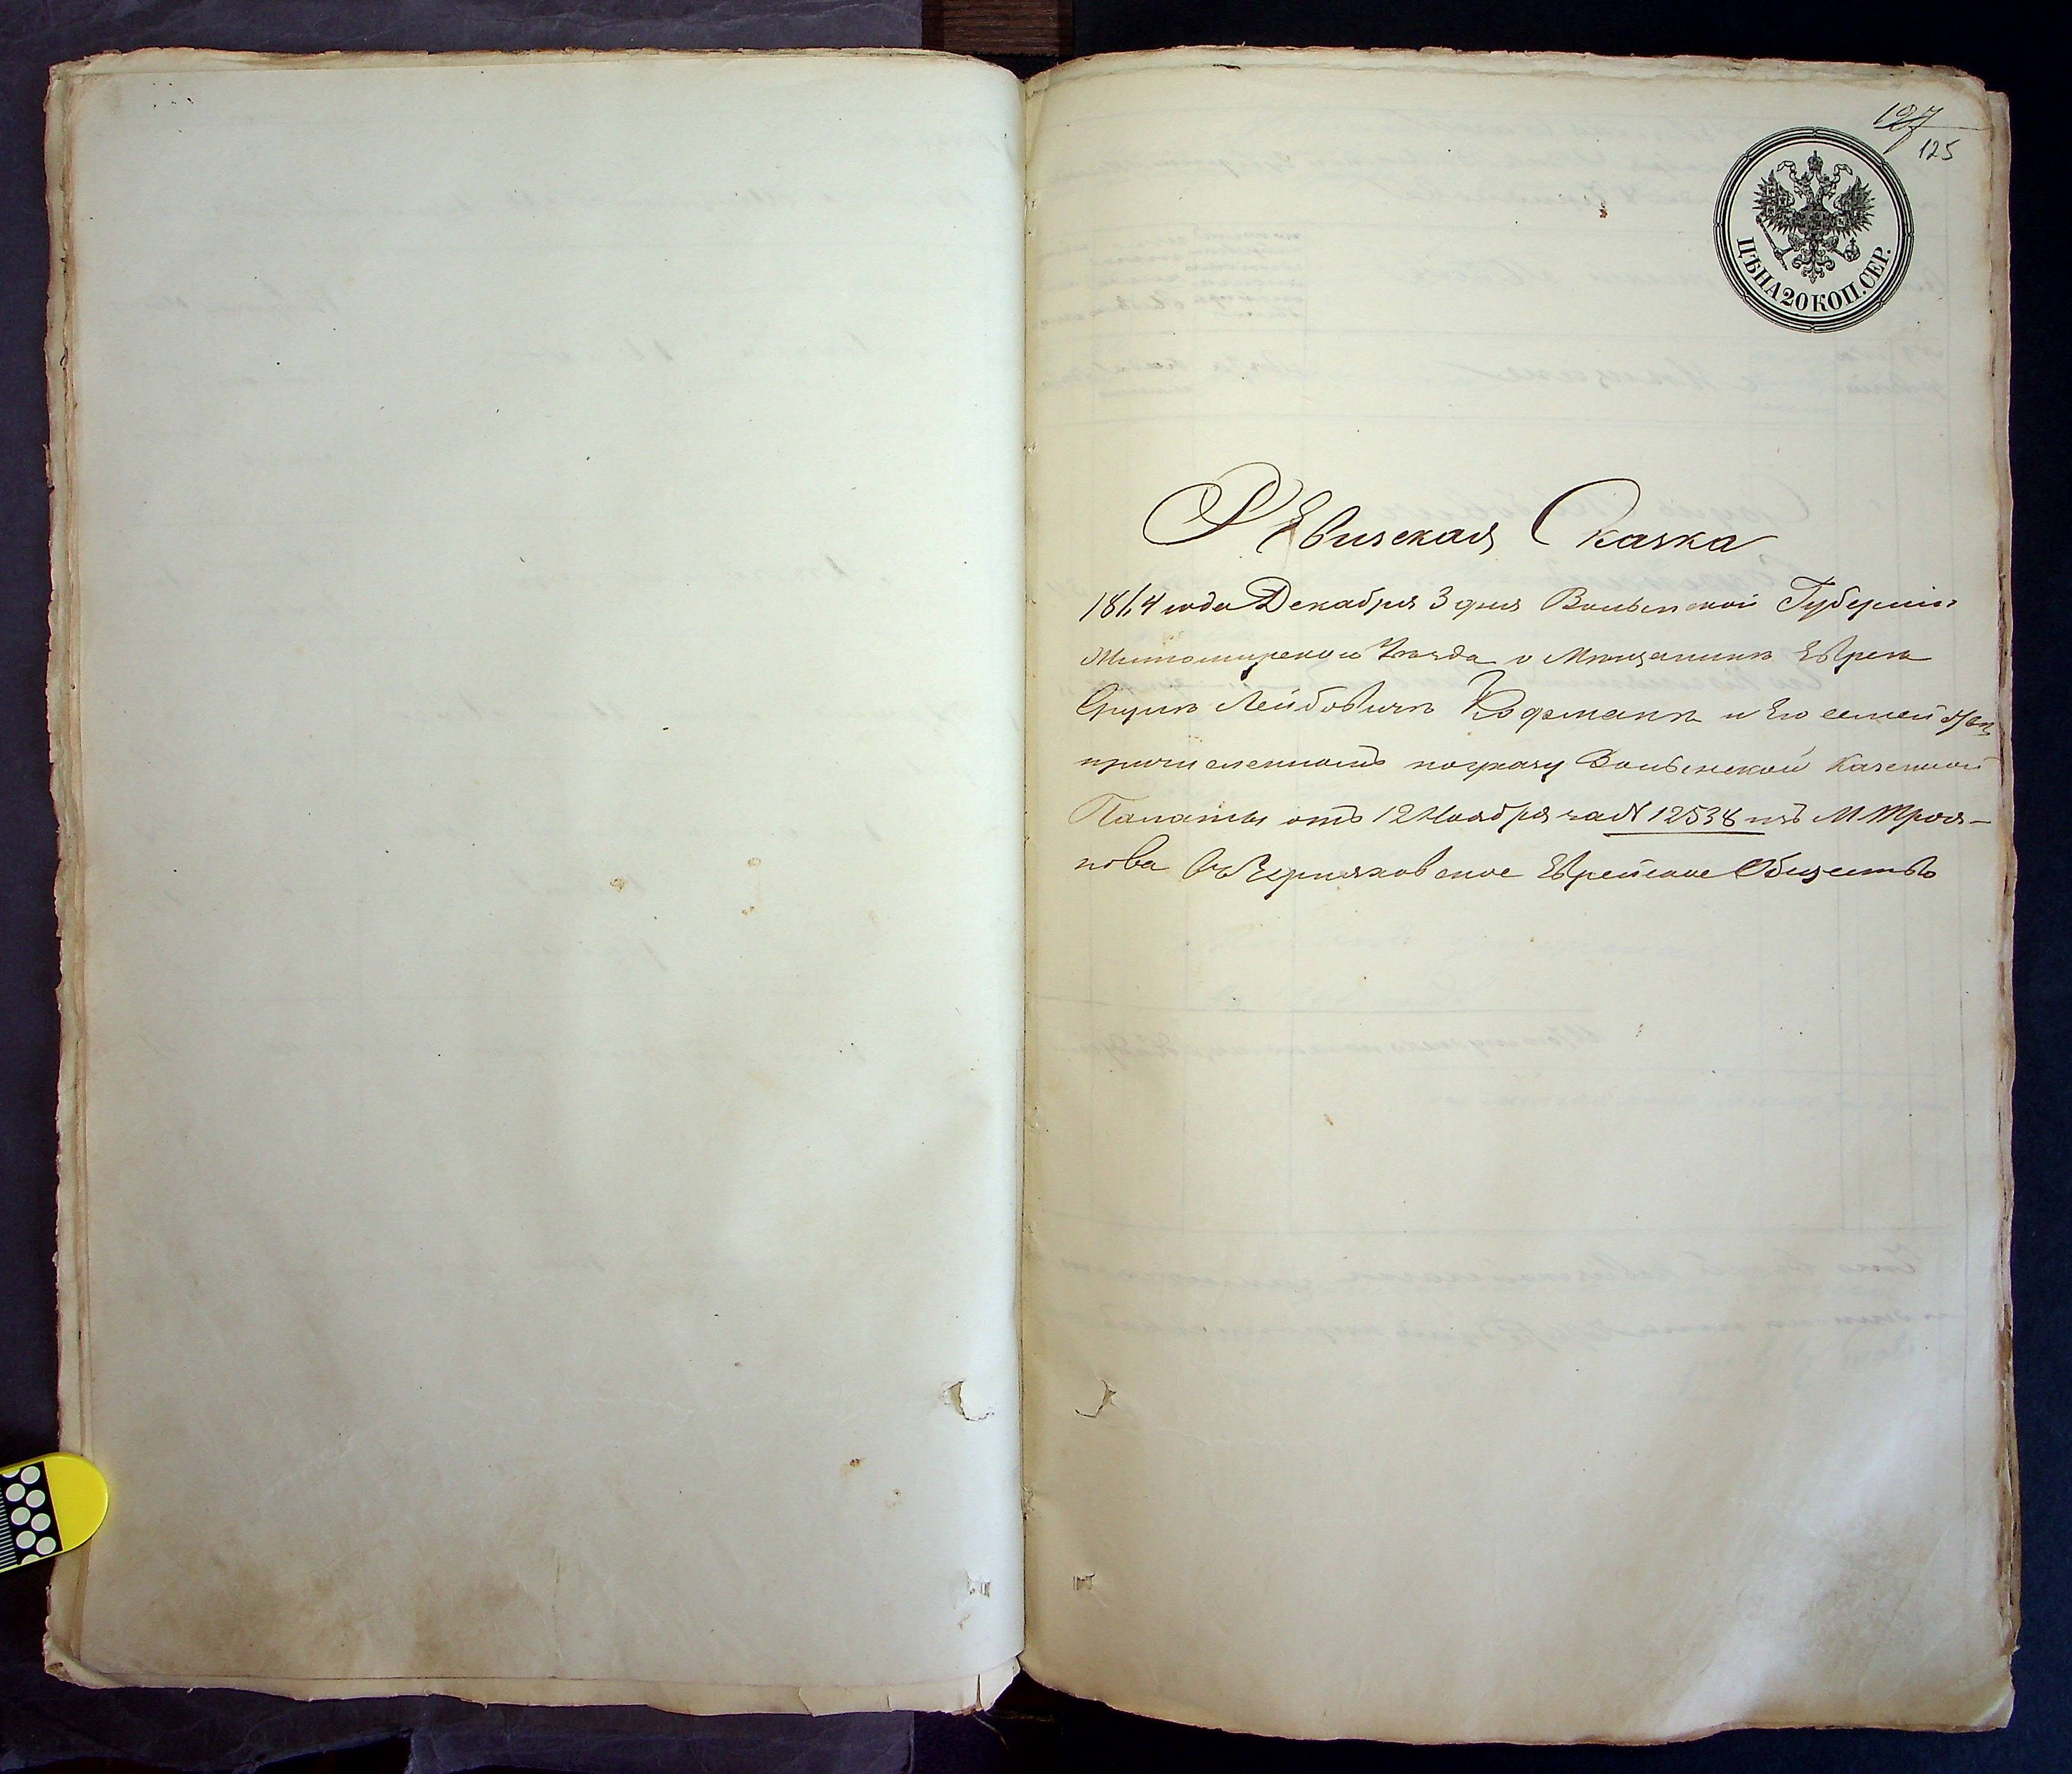 127
125
ЦѢНА 20 КОП. СЕР.
Ревизская Сказка
1864 года Декабря 3 дня Волынской Губерніи
Житомирского Уезда о Мещанине Еврее
Сруле Лейбовиче Кофмане и Его семействе
причисленномъ поуказу Волынской Казенной
Палаты отъ 12 Ноября за № 12538 изъ М Троя-
нова Въ Черняховское Еврейское Общество